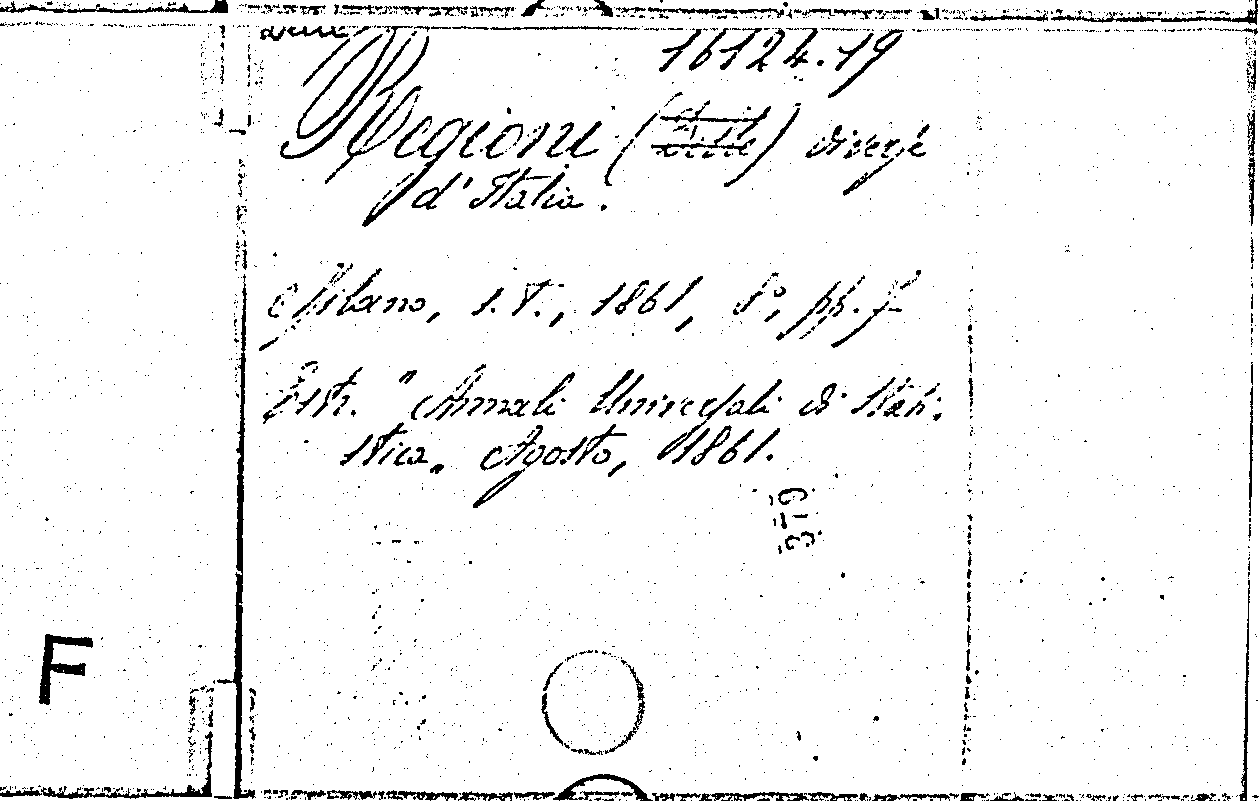 16124.19
Regioni (Delle) diverse
d'Italia.
Milano, s.t., 1861, 8°, pp. 7
Estr. "Annali Universali di Stati-
stica„ Agosto, 1861.
379
F